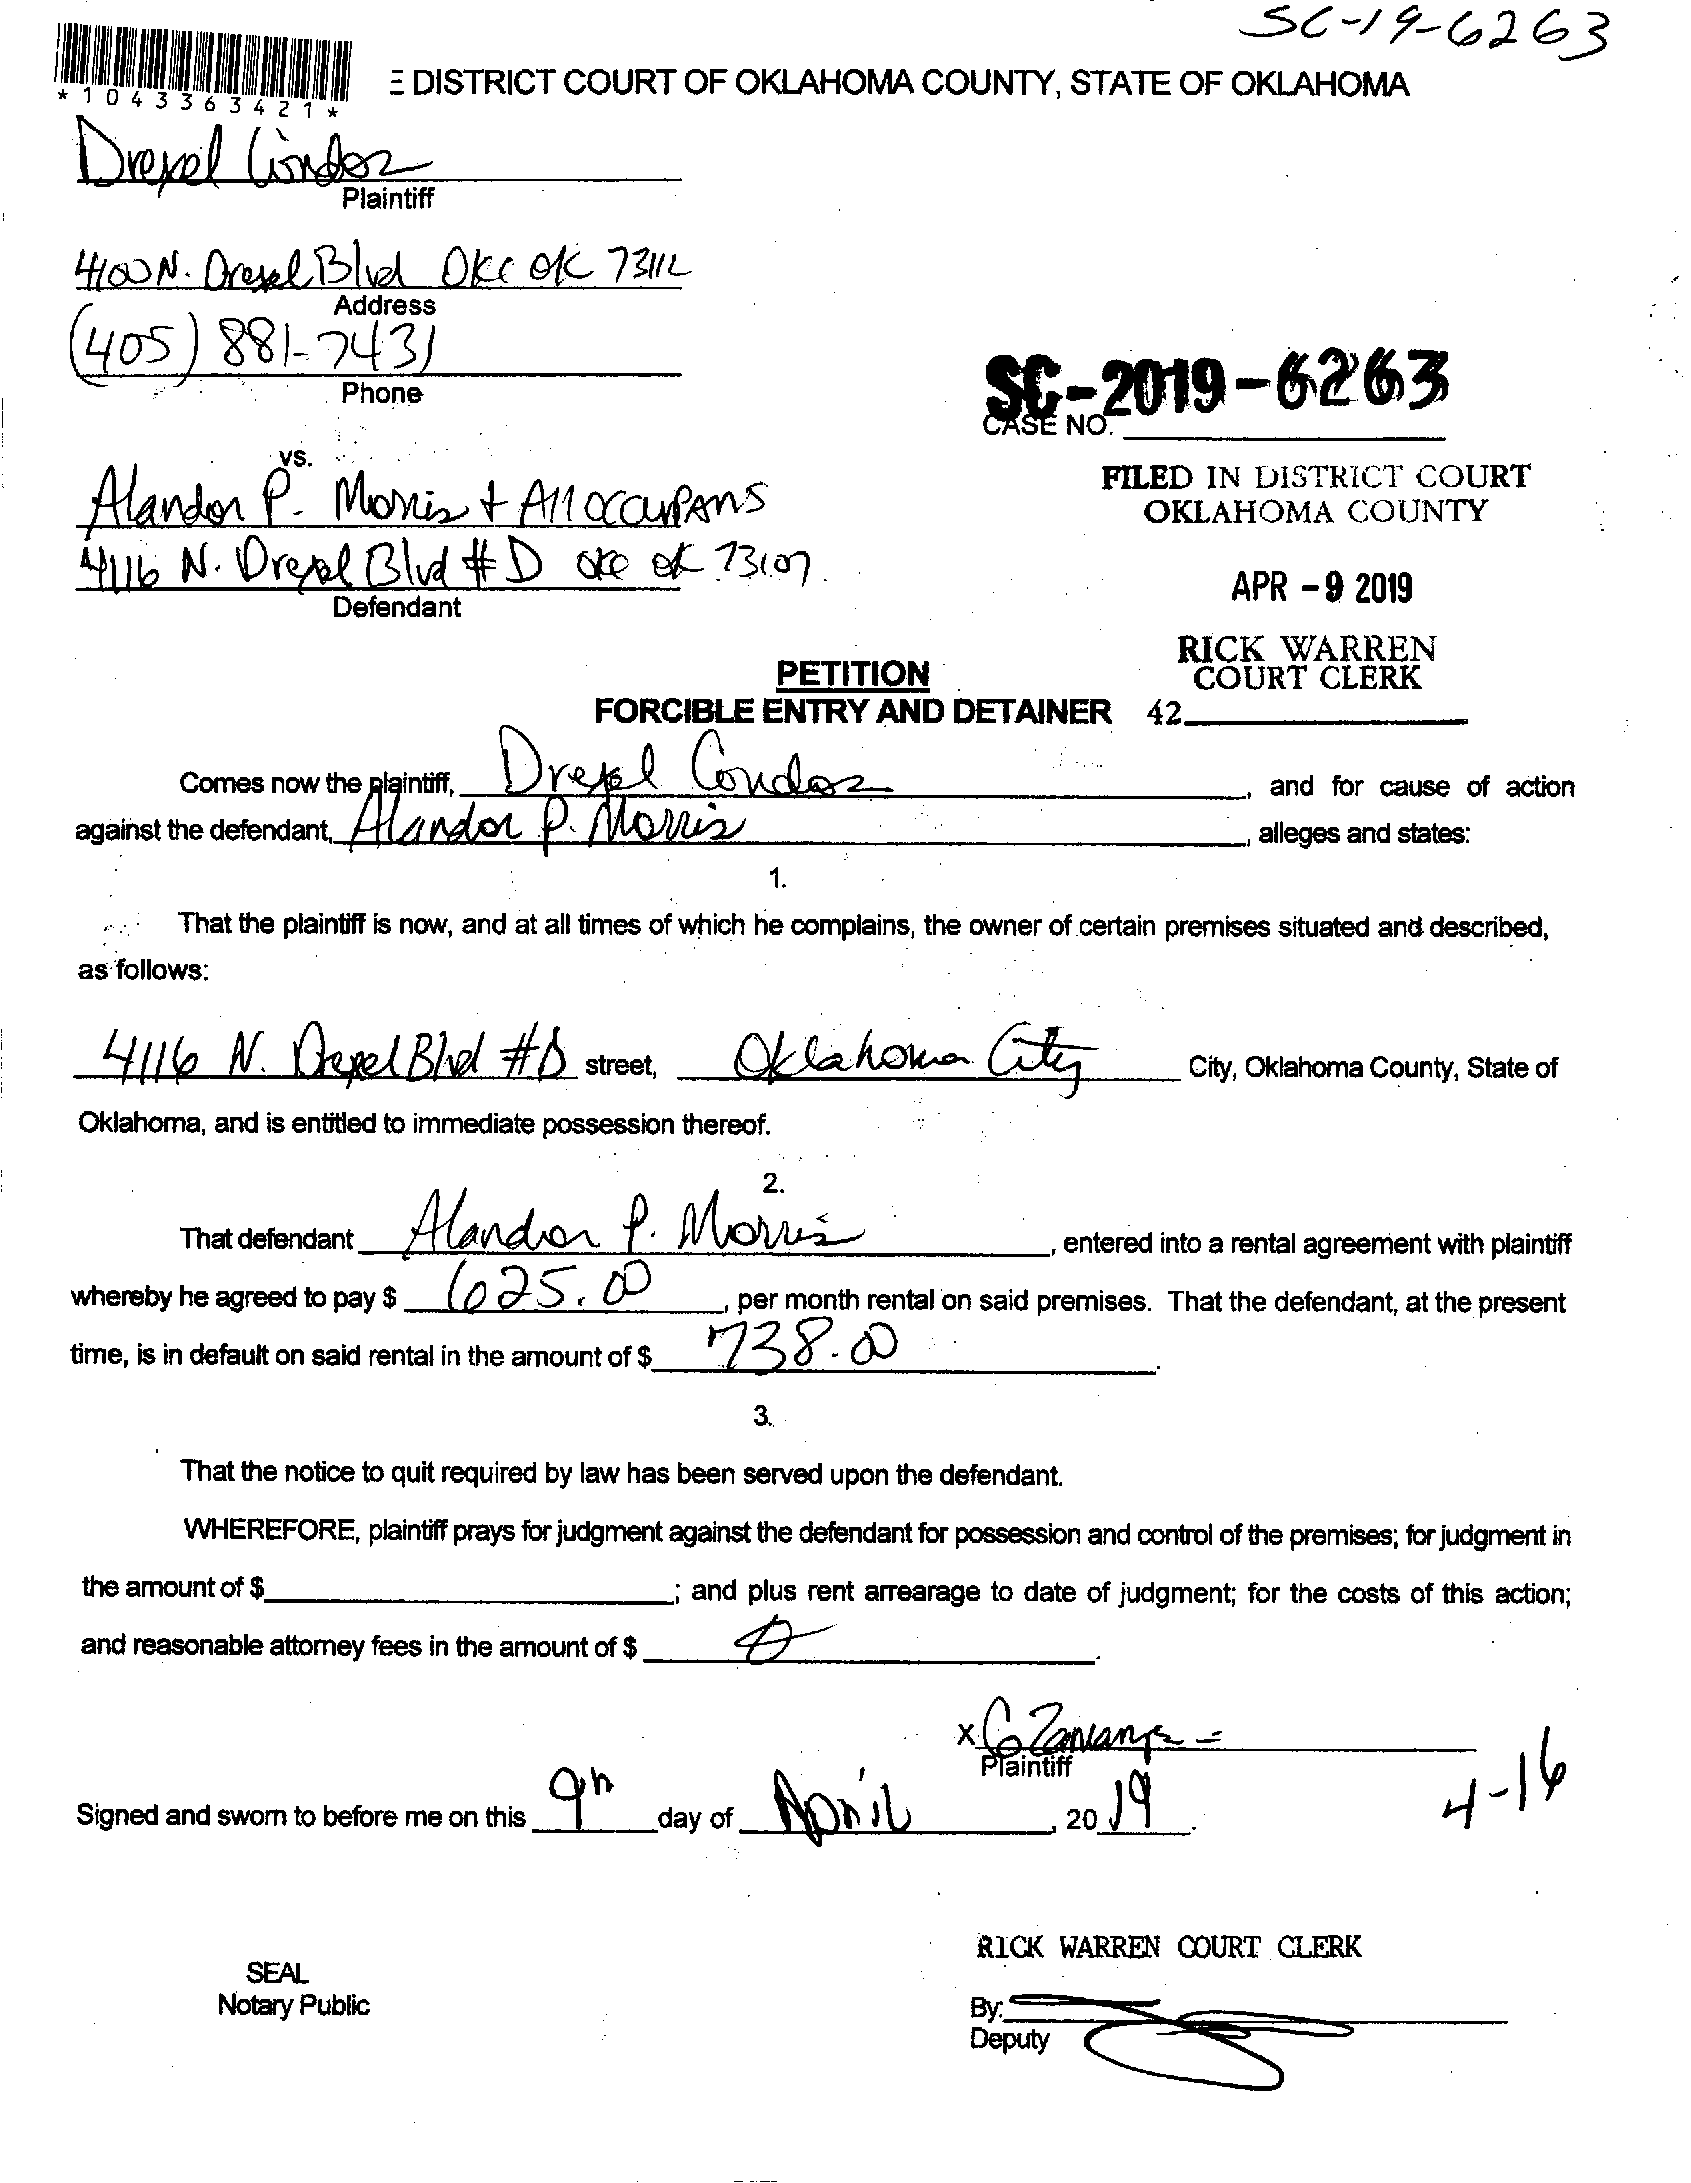 SC-19-6263
*1043363421*
E DISTRICT COURT OF OKLAHOMA COUNTY, STATE OF OKLAHOMA
Drexel Condos
Plaintiff
4100 N. Drexel Blvd OKC OK 73112
Address
(405) 881-7431
Phone
SC-2019-6263
CASE NO.
vs.
FILED IN DISTRICT COURT
OKLAHOMA COUNTY
Alandon P. Morris + All occupans
4116 N. Drexel Blvd # D OKC OK 73107
Defendant
APR - 9 2019
RICK WARREN
COURT CLERK
42
PETITION
FORCIBLE ENTRY AND DETAINER
Comes now the plaintiff, Drexel Condos, and for cause of action
against the defendant, Alandon P. Morris, alleges and states:
1.
That the plaintiff is now, and at all times of which he complains, the owner of certain premises situated and described,
as follows:
4116 N. Drexel Blvd #D street, Oklahoma City City, Oklahoma County, State of
Oklahoma, and is entitled to immediate possession thereof.
2.
That defendant Alandon P. Morris, entered into a rental agreement with plaintiff
whereby he agreed to pay $ 625.00, per month rental on said premises. That the defendant, at the present
time, is in default on said rental in the amount of $ 738.00.
3.
That the notice to quit required by law has been served upon the defendant.
WHEREFORE, plaintiff prays for judgment against the defendant for possession and control of the premises; for judgment in
the amount of $ ; and plus rent arrearage to date of judgment; for the costs of this action;
and reasonable attorney fees in the amount of $ .
x
Plaintiff
Signed and sworn to before me on this 9th day of April, 2019.
4-16
RICK WARREN COURT CLERK
SEAL
Notary Public
By:
Deputy